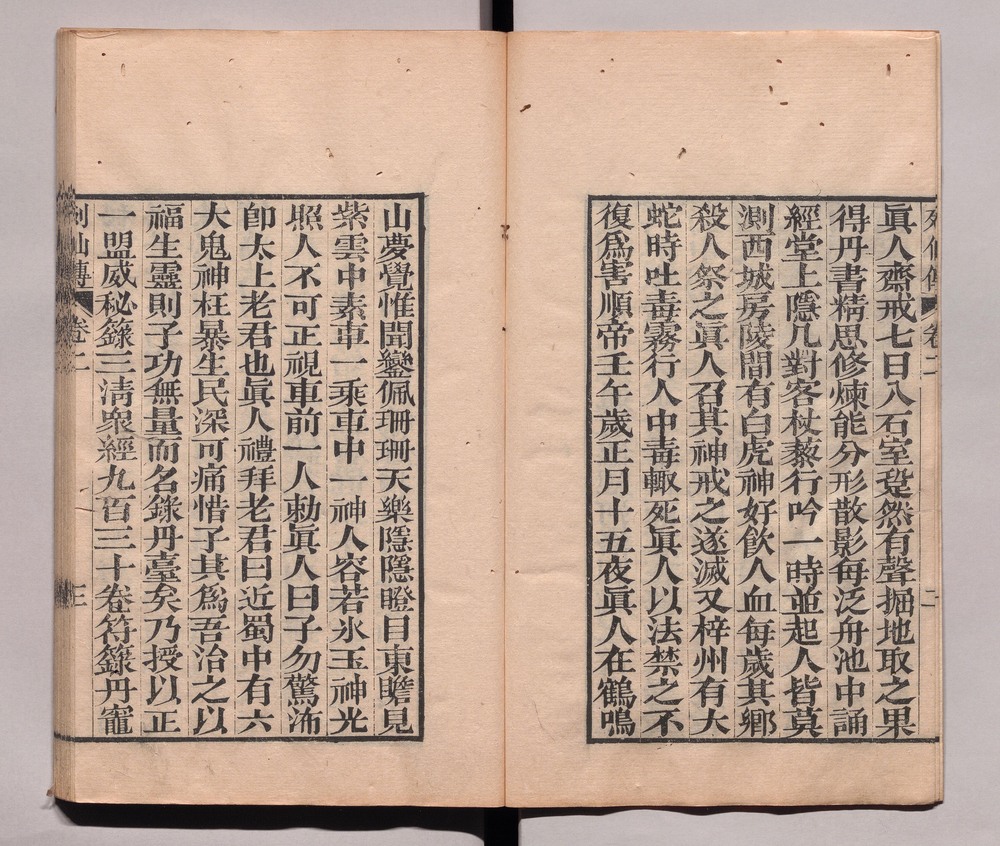 眞人齋戒七日入石室跫然有聲掘地取之果
得丹書精思修煉能分形散影每泛舟池中誦
經堂上隱几對客杖藜行吟一時並起人皆莫
測西城房陵間有白虎神好飲人血每歲其鄉
殺人祭之眞人召其神戒之遂滅又梓州有大
蛇時吐毒霧行人中毒輙死眞人以法禁之不
復爲害順帝壬午歲正月十五夜眞人在鶴鳴
列仙傳 卷二 二
山夢覺惟聞鑾佩珊珊天樂隱隱瞪目東瞻見
紫雲中素車一乘車中一神人容若氷玉神光
照人不可正視車前一人勅眞人曰子勿驚沛
卽太上老君也眞人禮拜老君曰近蜀中有六
大鬼神枉暴生民深可痛惜子其爲吾治之以
福生靈則子功無量而名錄丹臺矣乃授以正
一盟威秘籙三淸衆經九百三十卷符籙丹竈
列仙傳 卷二 三